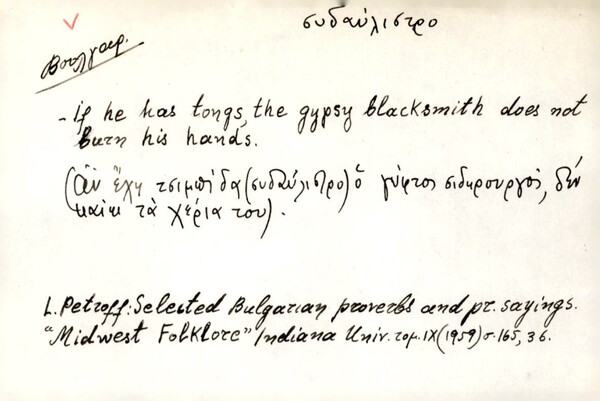 συδαύλιστρο
Βουλγαρ.
- If he has tongs, the gypsy blacksmith does not
burn his hands.
(ἄν ἔχῃ τσιμπίδα (συδαύλιστρο) ὁ γύφτος σιδηρουργός, δέν
καίει τὰ χέρια του).
L. Petroff: Selected Bulgarian proverbs and pr. sayings.
"Midwest Folklore" Indiana Univ. τομ. IX (1959) σ. 165, 36.